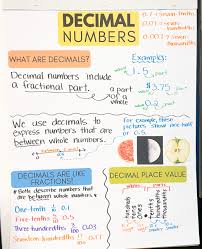 DECIMAL
NUMBERS
0.7 → seven-tenths
0.07 → seven-
hundredths
WHAT ARE DECIMALS?
Decimal numbers include
a fractional part.
Examples:
1.5
part
$3.75
a part
of a
whole
0.2
part
We use decimals to
express numbers that are
between whole numbers.
For example, these
pictures show one-half
or 0.5.
DECIMALS ARE LIKE
FRACTIONS!
Both describe numbers that
are between whole numbers.
One-tenth 1/10 0.1
Five-tenths 5/10 0.5
Three hundredths 3/100 0.03
Seventeen hundredths 17/100 0.17
DECIMAL PLACE VALUE